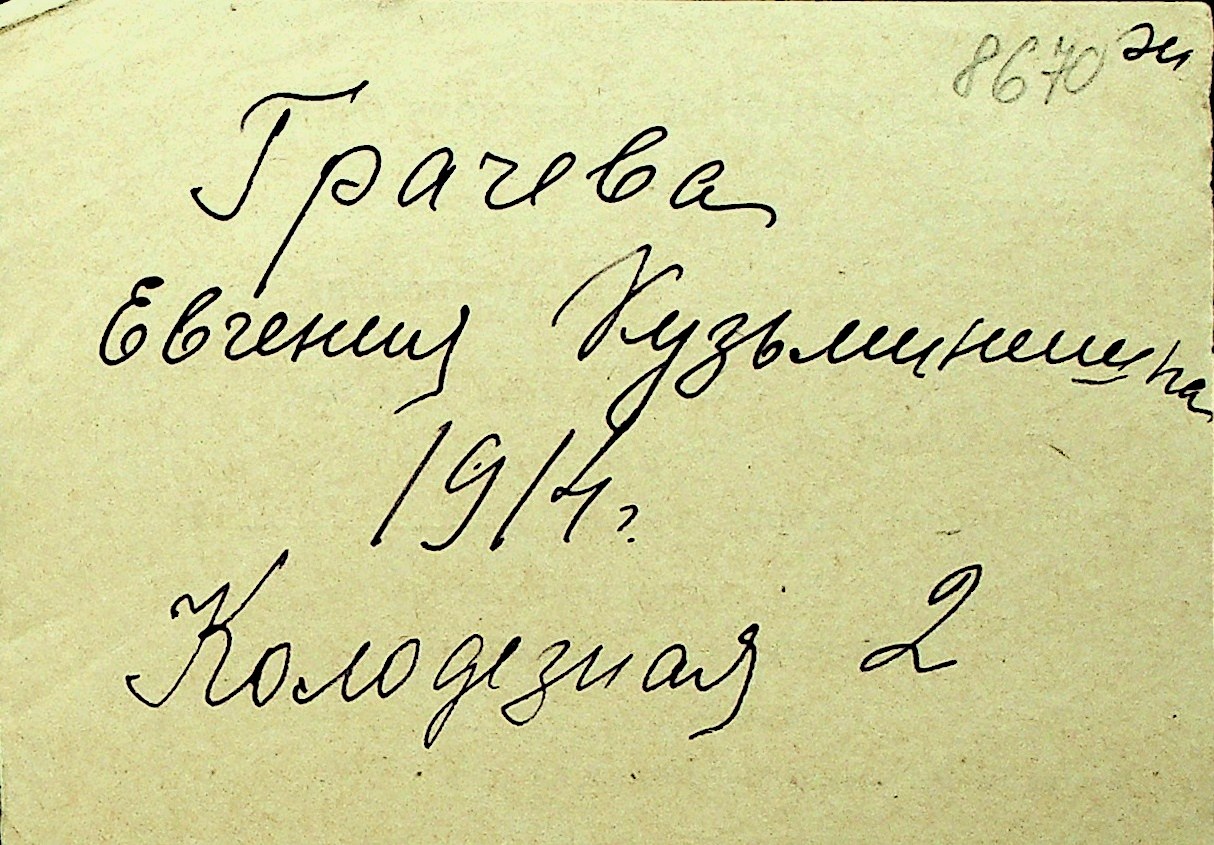 8670
Грачева
Евгения Кузьминична
1914 г.
Колодезная 2